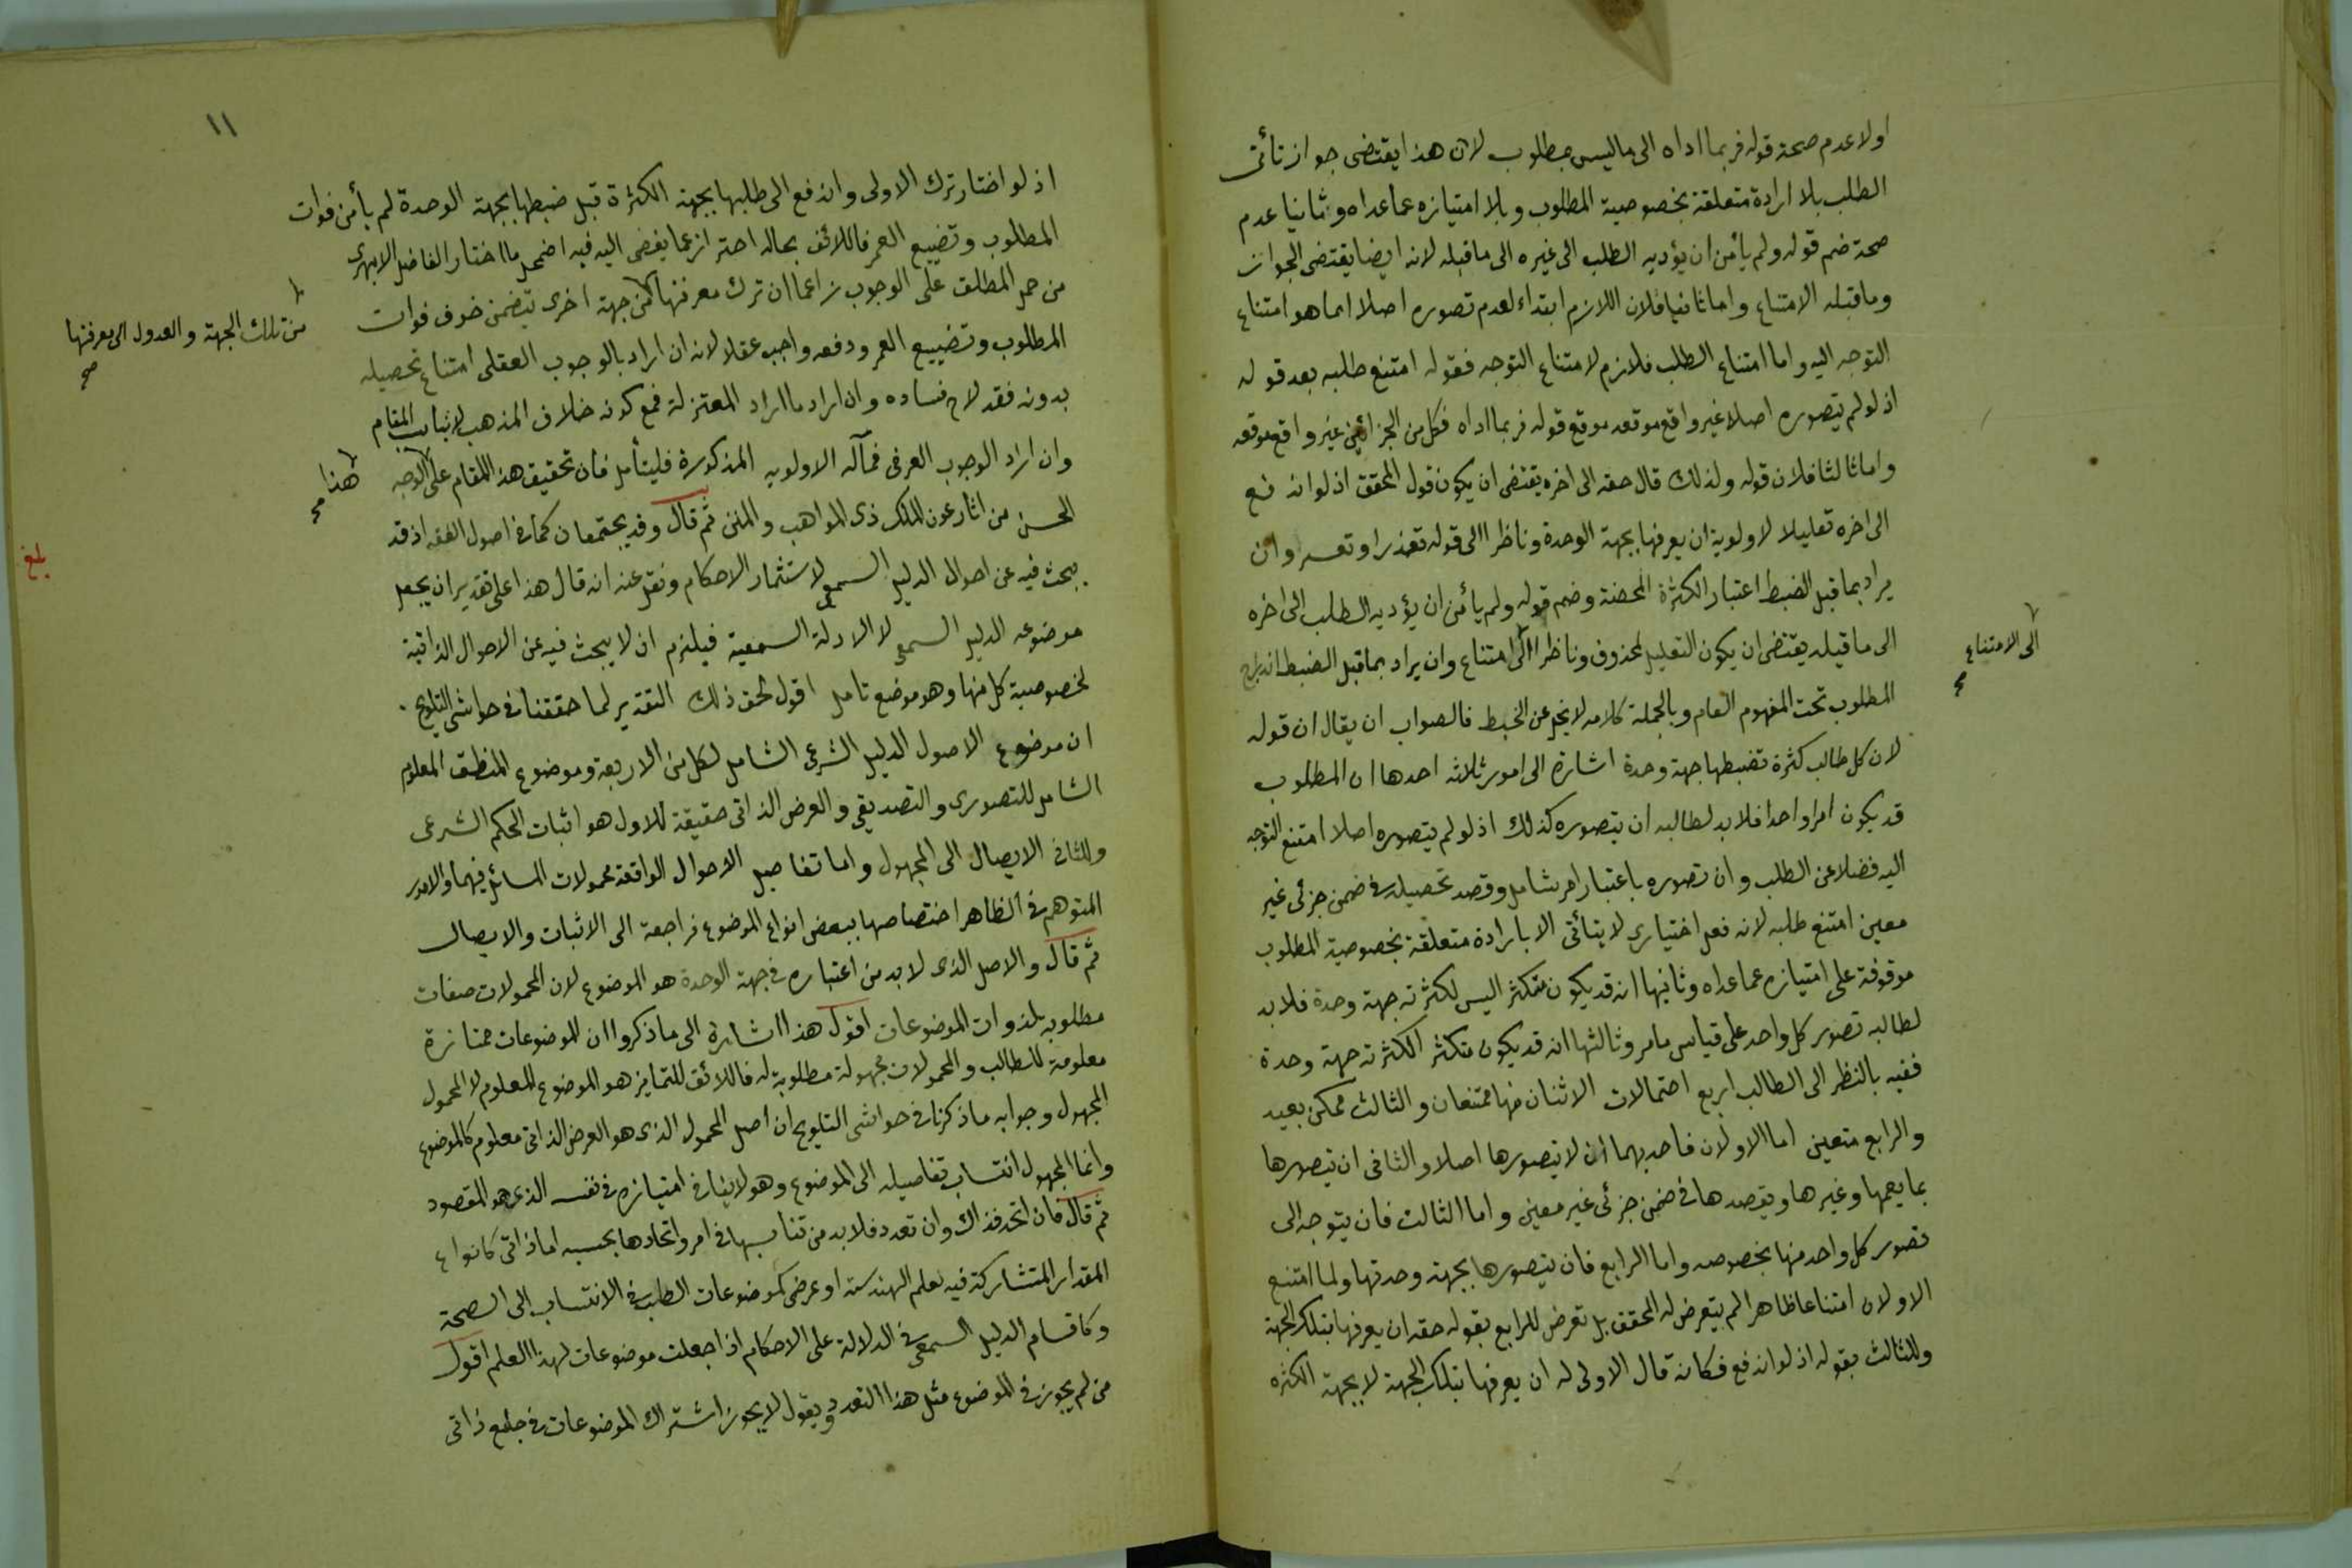 اولا عدم صحة قوله فربما اداه الى ما ليس بمطلوب لان هذا يقتضى جواز تأتى
الطلب بلا ارادة متعلقة بخصوصية المطلوب وبلا امتيازه عما عداه وثانيا عدم
صحة ضم قوله ولم يأمن ان يؤديه الطلب الى غيره الى ما قبله لانه ايضا يقتضى الجواز
وما قبله الامتناع واما ثانيا فلان اللازم ابتداء لعدم تصوره اصلا انما هو امتناع
التوجه اليه واما امتناع الطلب فلازم لامتناع التوجه فقوله امتنع طلبه بعد قوله
اذ لو لم يتصوره اصلا غير واقع موقعه موقع قوله فربما اداه فكل من الجزائين غير واقع موقعه
واما ثالثا فلان قوله ولذلك قال حقه الى اخره يقتضى ان يكون قول المحقق اذ لو اندفع
الى اخره تعليلا لاولوية ان يعرفها بجهة الوحدة وناظرا الى قوله تعذر او تعسر وان
يراد بما قبل الضبط اعتبار الكثرة المحضة وضم قوله ولم يأمن ان يؤديه الطلب الى اخره
الى ما قبله يقتضى ان يكون التعليل لمحذوف وناظرا الى امتناع وان يراد بما قبل الضبط اندراج
الى الامتناع
صح
المطلوب تحت المفهوم العام وبالجملة كلامه لا يخلو عن الخبط فالصواب ان يقال ان قوله
لان كل طالب كثرة تضبطها جهة وحدة اشارة الى امور ثلاثه احدها ان المطلوب
قد يكون امرا واحدا فلا بد لطالبه ان يتصوره كذلك اذ لو لم يتصوره اصلا امتنع التوجه
اليه فضلا عن الطلب وان تصوره باعتبار امر شامل وقصد تحصيله فى ضمن جزئى غير
معين امتنع طلبه لانه فعل اختيارى لا يتأتى الا بارادة متعلقة بخصوصية المطلوب
موقوفة على امتيازه عما عداه وثانيها انه قد يكون متكثرا ليس لكثرته جهة وحدة فلا بد
لطالبه تصور كل واحد على قياس ما مر وثالثها انه قد يكون متكثرا لكثرته جهة وحدة
ففيه بالنظر الى الطالب اربع احتمالات الاثنان منها ممتنعان والثالث ممكن بعيد
والرابع متعين اما الاولان فاحديهما ان لا يتصورها اصلا والثانى ان يتصورها
بما يعمها وغيرها ويقصدها فى ضمن جزئى غير معين واما الثالث فان يتوجه الى
تصور كل واحد منها بخصوصه واما الرابع فان يتصورها بجهة وحدتها ولما امتنع
الاولان امتناعا ظاهرا لم يتعرض له المحقق بل تعرض للرابع بقوله حقه ان يعرفها بتلك الجهة
وللثالث بقوله اذ لو اندفع فكانه قال الاولى له ان يعرفها بتلك الجهة لا بجهة الكثره
١١
اذ لو اختار ترك الاولى واندفع الى طلبها بجهة الكثرة قبل ضبطها بجهة الوحدة لم يأمن فوات
المطلوب وتضييع العمر فاللائق بحاله احتراز عما يفضى اليه فيه اضمحل ما اختار الفاضل الابهرى
من حمل المطلق على الوجوب زاعما ان ترك معرفتها من جهة اخرى يتضمن خوف فوات
من تلك الجهة والعدول الى معرفتها
صح
المطلوب وتضييع العمر ودفعه واجب عقلا لانه ان اراد بالوجوب العقلى امتناع تحصيله
بدونه فقد لاح فساده وان اراد ما اراد المعتزلة فمع كونه خلاف المذهب لا يناسب المقام
وان اراد الوجوب العرفى فمآله الاولويه المذكورة فليتأمل فان تحقيق هذا المقام على الوجه
هذا
صح
الحسن من اثار عون الملك ذى المواهب والمنن ثم قال وقد يجتمعان كما فى اصول الفقه اذ قد
بلغ
يبحث فيه عن احوال الدليل السمعى لاستثمار الاحكام ونقل عنه انه قال هذا على تقدير ان يجعل
موضوعه الدليل السمعى لا الادلة السمعية فيلزم ان لا يبحث فيه عن الاحوال الذاتية
لخصوصية كل منها وهو موضع تامل اقول الحق ذلك التقدير لما حققنا فى حواشى التلويح
ان موضوع الاصول الدليل الشرعى الشامل لكل من الاربعة وموضوع المنطق المعلوم
الشامل للتصورى والتصديقى والعرض الذاتى حقيقة للاول هو اثبات الحكم الشرعى
وللثانى الايصال الى المجهول واما تفاصيل الاحوال الواقعة محمولات المسائل فيهما والامور
المتوهم فى الظاهر اختصاصها ببعض انواع الموضوع فراجعة الى الاثبات والايصال
ثم قال والاصل الذى لا بد من اعتباره فى جهة الوحدة هو الموضوع لان المحمولات صفات
مطلوبه لذوات الموضوعات اقول هذا اشارة الى ما ذكروا ان الموضوعات ممتازة
معلومة للطالب والمحمولات مجهولة مطلوبة له فاللائق للتمايز هو الموضوع المعلوم لا المحمول
المجهول وجوابه ما ذكرنا فى حواشى التلويح ان اصل المحمول الذى هو العرض الذاتى معلوم كالموضوع
وانما المجهول انتساب تفاصيله الى الموضوع وهو لا ينافى امتيازه فى نفسه الذى هو المقصود
ثم قال فان اتحد فذاك وان تعدد فلا بد من تناسبها فى امر واتحادها بحسبه اما ذاتى كانواع
المقدار المتشاركة فيه لعلم الهندسة او عرضى كموضوعات الطب فى الانتساب الى الصحة
وكاقسام الدليل السمعى فى الدلالة على الاحكام اذا جعلت موضوعات لهذا العلم اقول
من لم يجوز فى الموضوع مثل هذا التعدد ويقول لا يجوز اشتراك الموضوعات فى جامع ذاتى